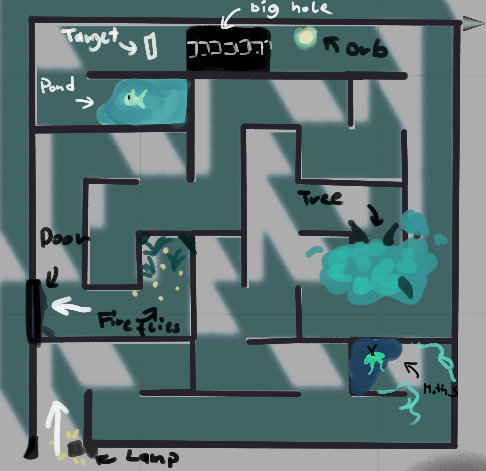 big hole
Target
orb
Pond
Tree
Door
Fireflies
Moths
Lamp